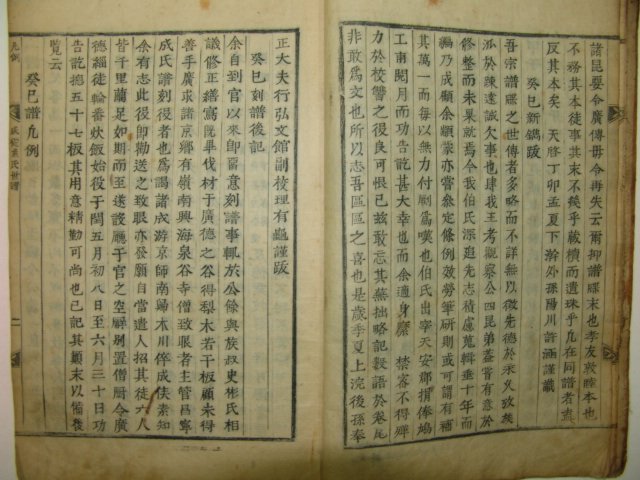 諸昆要令廣傳毋令再失云爾抑譜牒末也孝友敦睦本也
不務其本徒事其末不幾乎載櫝而遺珠乎凡在同譜者盍
反其本矣 天啓丁卯孟夏下瀚外孫陽川許涵謹識
癸巳新鐫跋
吾宗譜牒之世傳者多略而不詳無以徵先德於永久故族
派於踈遠誠欠事也肆我王考觀察公四昆弟蓋嘗有意於
修整而未果就焉今我伯氏深追先志積慮蒐輯垂十年而
編乃成顧余顓蒙亦嘗參定條例效勞筆硏則或可謂有補
其萬一而每以無力付剞爲嘆也伯氏出宰天安鄕捐俸鳩
工甫閱月而功告訖甚大幸也而余適身縻 禁客不得殫
力於校讐之末多可恨已玆敢忘其蕪拙略記數語於卷尾
非敢爲文也所以志吾區區之喜也是歲季夏上浣後孫奉
正大夫行弘文館副校理有龜謹跋
癸巳刻譜後記
余自到官以來卽留意刻譜事輒於公餘與族叔史彬氏相
議修正繕寫旣畢伐材于廣德之谷得梨木若干板顧未得
善手廣求諸京鄕有嶺南興海泉谷寺僧致眼者主管昌寧
成氏譜刻役者也爲謁諸成游京師南歸木川倅成侯素知
余有志此役卽勸送之致眼亦發願自當遣人招其徒六人
皆千里繭足如期而至遂設廳于官之空廨別置僧厨令廣
德緇徒輪番炊飯始役于閏五月初八日至六月三十日功
告訖摠五十七板其用意精勤可尙也已記其顚末以備後
覽云
癸巳譜凡例
凡例
氏世譜